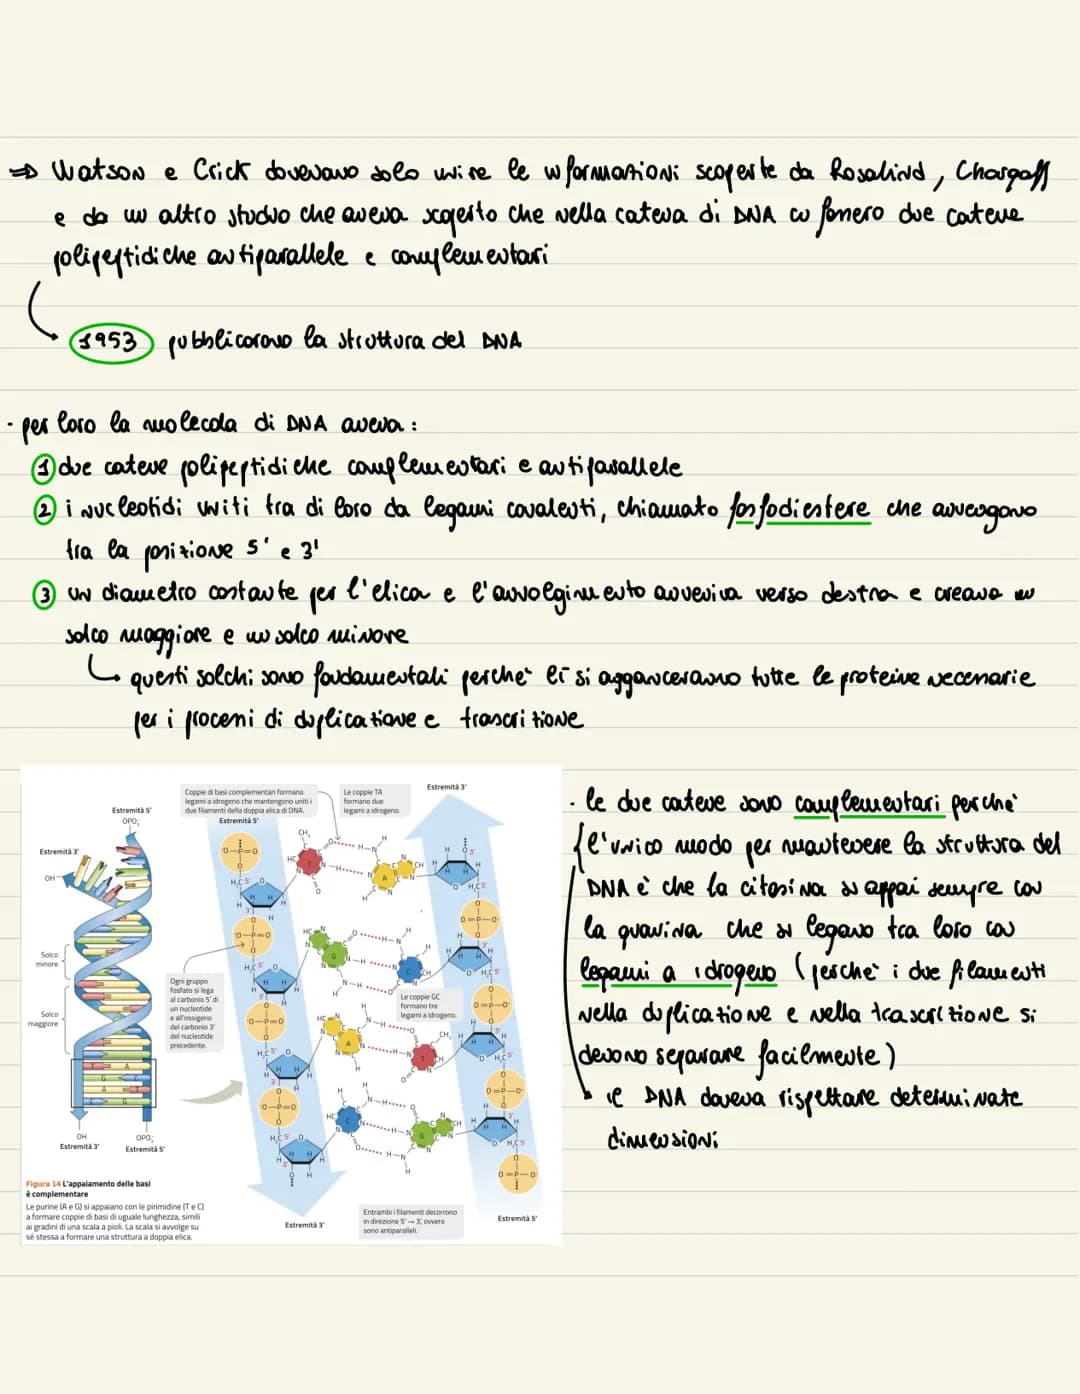 ⇒ Watson e Crick dovevano solo unire le informazioni scoperte da Rosalind, Chargaff
e da un altro studio che aveva scoperto che nella catena di DNA ci fonero due catene
polipeptidiche antiparallele e complementari
1953 pubblicarono la struttura del DNA
· per loro la molecola di DNA aveva :
1 due catene polipeptidiche complementari e antiparallele
2 i nucleotidi uniti tra di loro da legami covalenti, chiamato fosfodiestere che avvengono
tra la posizione 5' e 3'
3 un diametro costante per l'elica e l'avvolgimento avveniva verso destra e creava un
solco maggiore e un solco minore
questi solchi sono fondamentali perché lì si agganceranno tutte le proteine necessarie
per i processi di duplicazione e trascrizione
Coppie di basi complementari formano
legami a idrogeno che mantengono uniti i
due filamenti della doppia elica di DNA.
Le coppie TA
formano due
legami a idrogeno.
Estremità 3'
Estremità 5'
Estremità 5'
OPO₃⁻
Estremità 3'
OH
Solco
minore
Solco
maggiore
Ogni gruppo
fosfato si lega
al carbonio 5' di
un nucleotide
e all'ossigeno
del carbonio 3'
del nucleotide
precedente.
Le coppie GC
formano tre
legami a idrogeno.
OH
Estremità 3'
OPO₃⁻
Estremità 5'
Estremità 3'
Entrambi i filamenti decorrono
in direzione 5' → 3', ovvero
sono antiparalleli.
Estremità 5'
Figura 14 L'appaiamento delle basi
è complementare
Le purine (A e G) si appaiano con le pirimidine (T e C)
a formare coppie di basi di uguale lunghezza, simili
ai gradini di una scala a pioli. La scala si avvolge su
sé stessa a formare una struttura a doppia elica.
· le due catene sono complementari perché
l'unico modo per mantenere la struttura del
DNA è che la citosina si appai sempre con
la guanina che si legano tra loro con
legami a idrogeno (perché i due filamenti
nella duplicazione e nella trascrizione si
devono separare facilmente)
il DNA doveva rispettare determinate
dimensioni